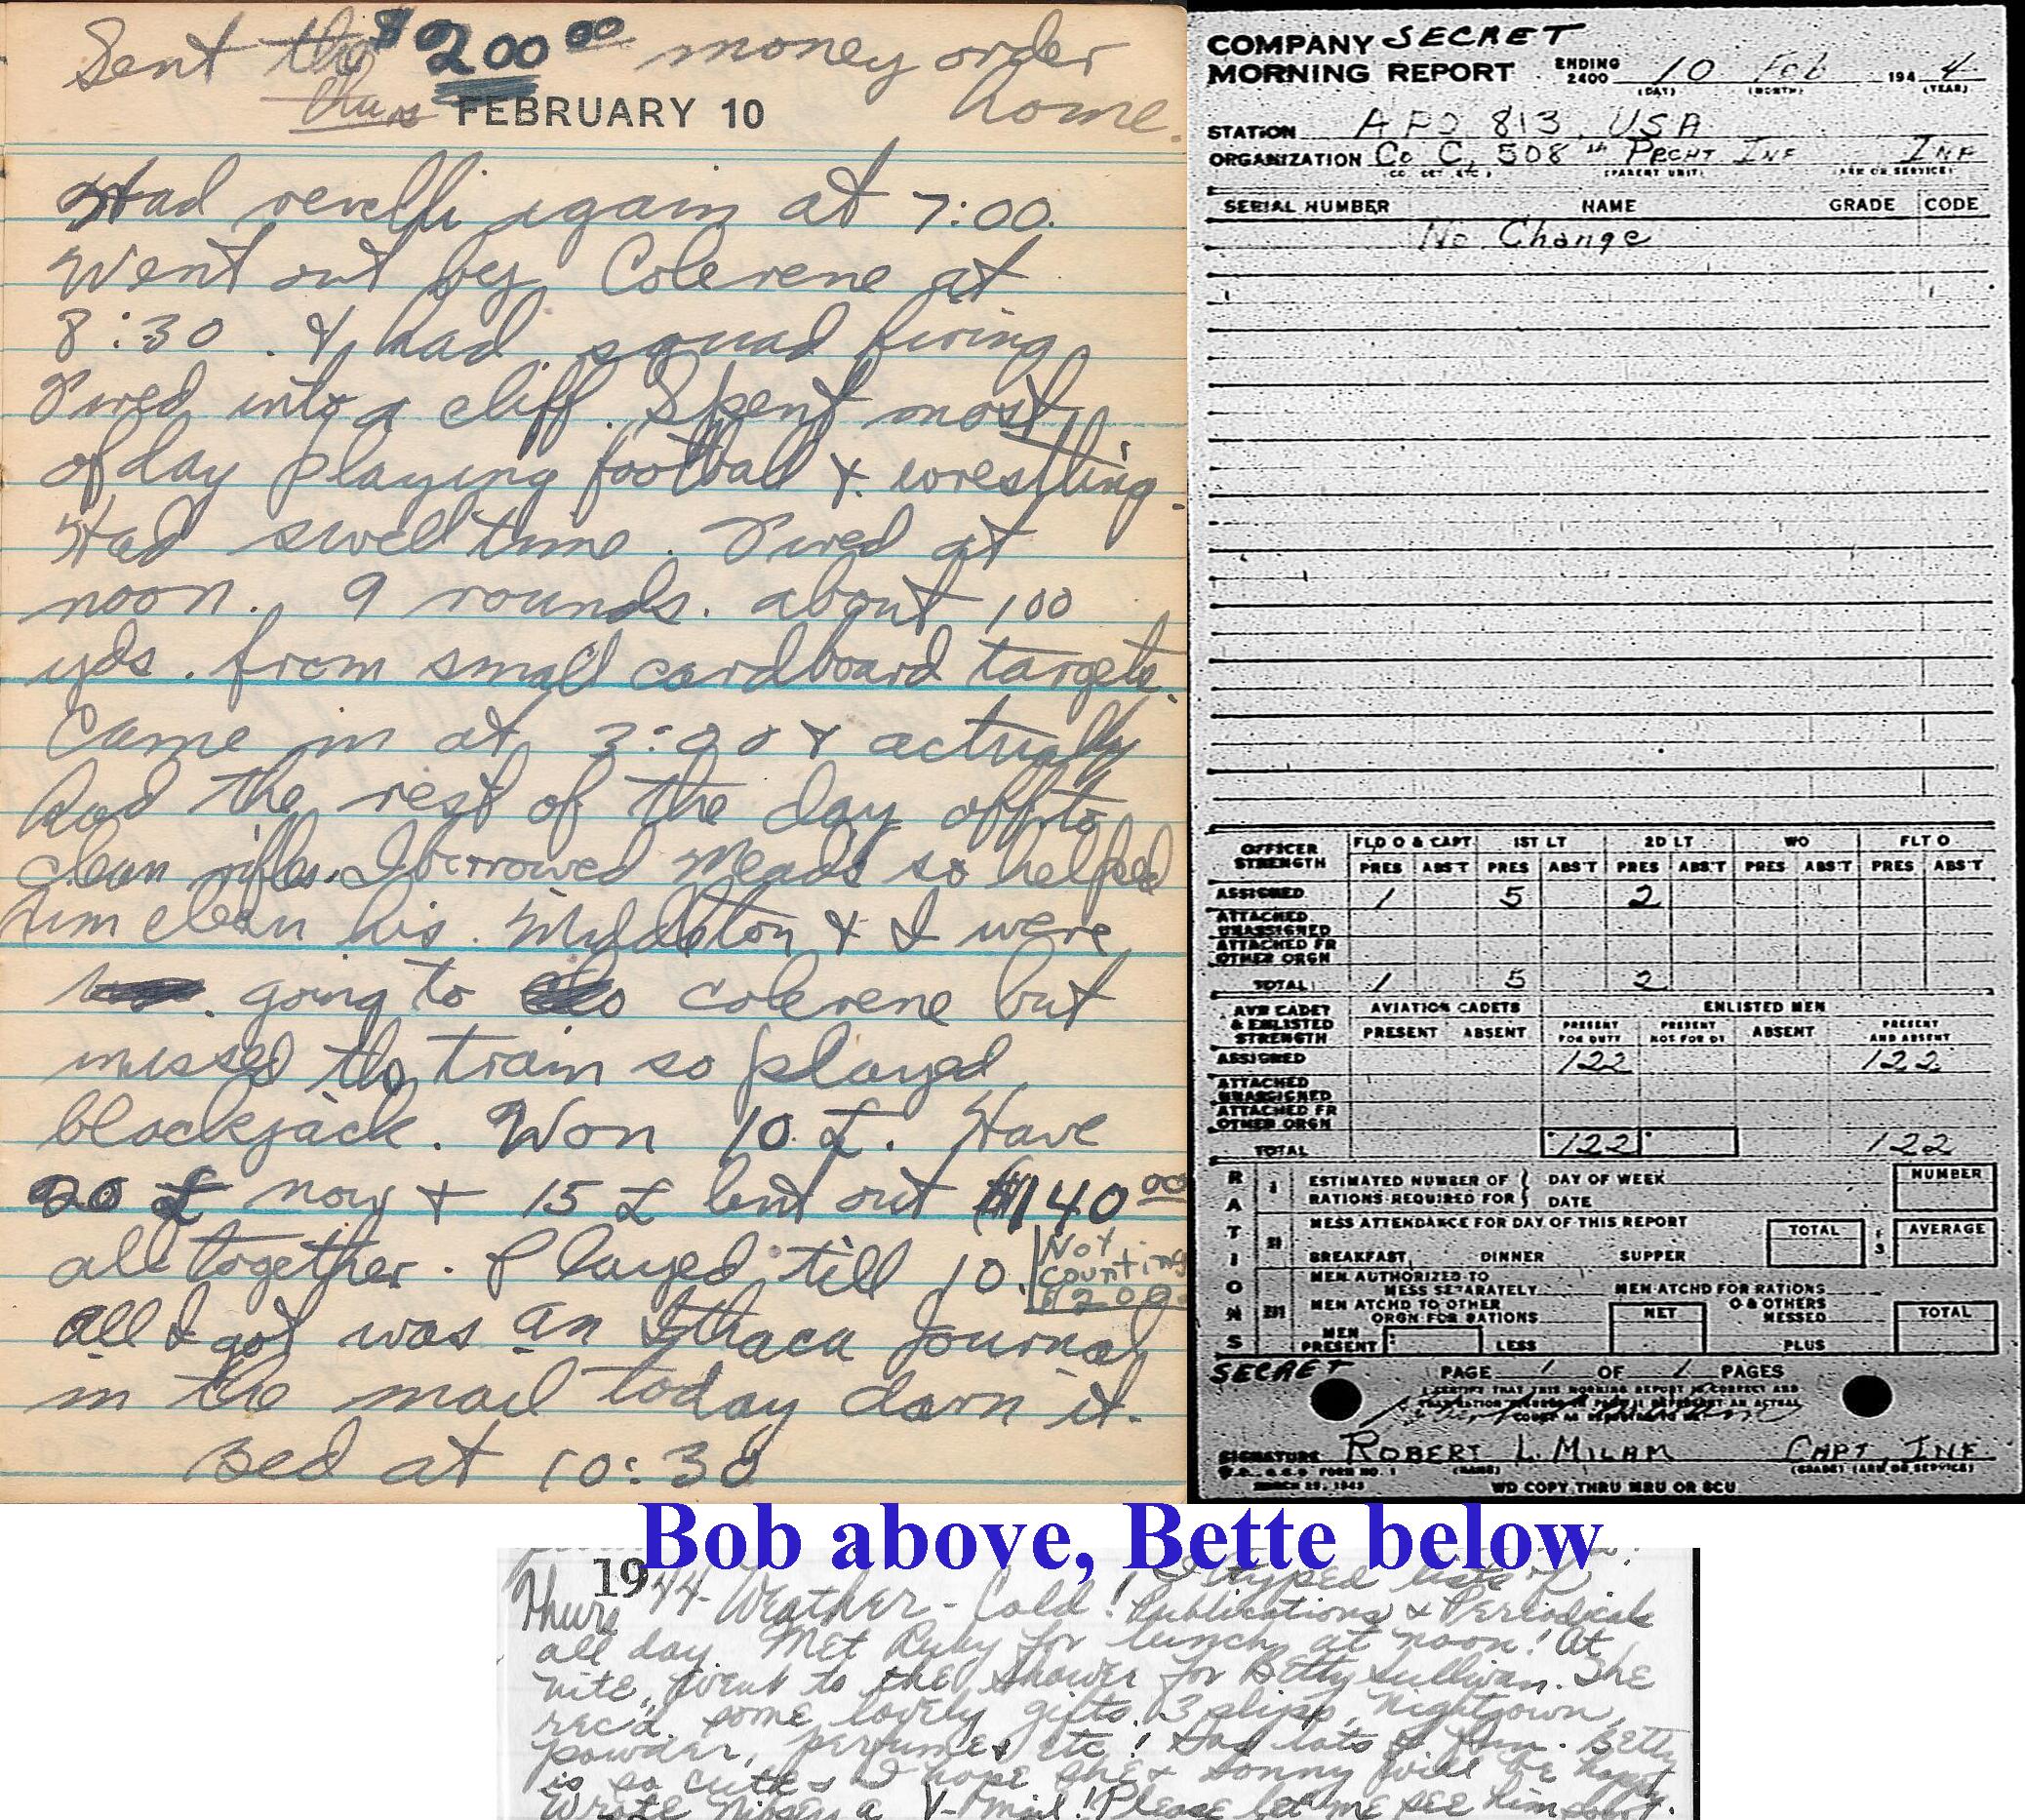 Sent the $200.00 money order
thurs FEBRUARY 10 home.
Had revelli again at 7:00.
Went out by Colerene at
8:30. & had squad firing
Fired into a cliff. Spent most
of day playing football & wrestling.
Had swell time. Fired at
noon. 9 rounds. about 100
yds. from small cardboard targets.
Came in at 3:00 & actually
had the rest of the day off to
clean rifles. I borrowed Meads so helped
him clean his. Middleton & I were
going to colerene but
missed the train so played
blackjack. Won 10 £. Have
20 £ now + 15 £ lent out $140.00
all together. Played till 10.
Not
counting
$200.
all I got was an Ithaca Journal
in the mail today darn it.
Bed at 10:30
COMPANY SECRET
MORNING REPORT ENDING 2400 10 Feb 1944
(DAY) (MONTH) (YEAR)
STATION APO 813, USA
ORGANIZATION Co C, 508th Prcht Inf Inf
(CO, DET, ETC.) (PARENT UNIT) (ARM OR SERVICE)
SERIAL NUMBER NAME GRADE CODE
No Change
OFFICER STRENGTH FLD O & CAPT 1ST LT 2D LT WO FLT O
PRES ABS'T PRES ABS'T PRES ABS'T PRES ABS'T PRES ABS'T
ASSIGNED 1 5 2
ATTACHED UNASSIGNED
ATTACHED FR OTHER ORGN
TOTAL 1 5 2
AVN CADET & ENLISTED STRENGTH AVIATION CADETS ENLISTED MEN
PRESENT ABSENT PRESENT FOR DUTY PRESENT NOT FOR DY ABSENT PRESENT AND ABSENT
ASSIGNED 122 122
ATTACHED UNASSIGNED
ATTACHED FR OTHER ORGN
TOTAL 122 122
RATIONS
I ESTIMATED NUMBER OF RATIONS REQUIRED FOR DAY OF WEEK DATE NUMBER
II MESS ATTENDANCE FOR DAY OF THIS REPORT TOTAL ÷ 3 AVERAGE
BREAKFAST DINNER SUPPER
III MEN AUTHORIZED TO MESS SEPARATELY MEN ATCHD FOR RATIONS
MEN ATCHD TO OTHER ORGN FOR RATIONS NET O & OTHERS MESSED TOTAL
MEN PRESENT LESS PLUS
SECRET PAGE 1 OF 1 PAGES
I CERTIFY THAT THIS MORNING REPORT IS CORRECT AND
SIGNATURE ROBERT L. MILAM CAPT, INF
FORM NO. 1 (NAME) (GRADE) (ARM OR SERVICE)
MARCH 25, 1943 WD COPY THRU MRU OR SCU
Bob above, Bette below
Thurs 1944- Weather - Cold! I typed lists of
Publications & Periodicals
all day. Met Ruby for lunch at noon! At
nite, went to the shower for Betty Sullivan. She
rec'd. some lovely gifts. 3 slips, Nightgown,
powder, perfumes etc! Had lots of fun. Betty
is so cute & I hope she & Sonny will be happy.
Wrote a V-Mail! Please let me see him soon.